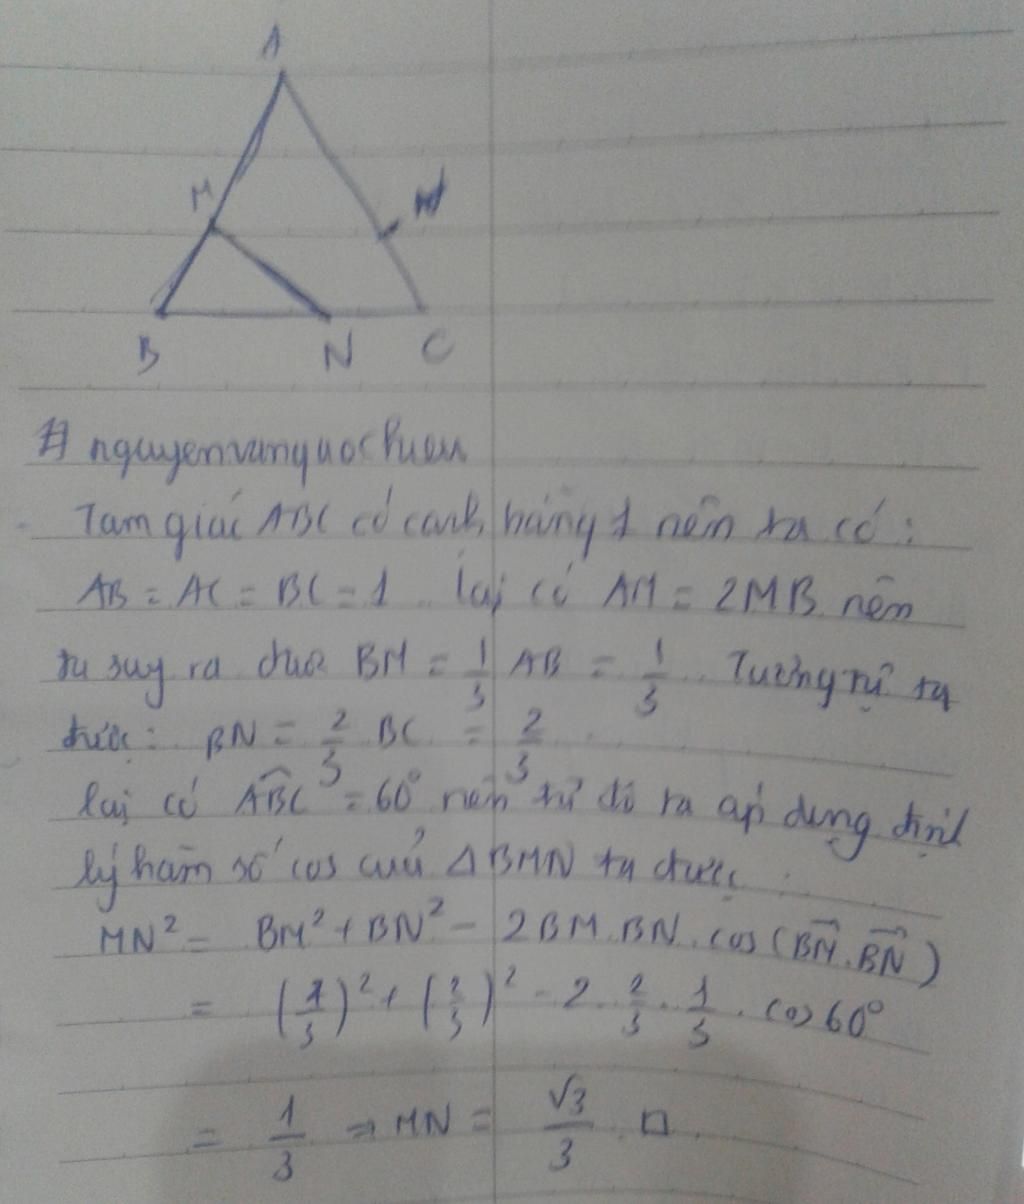 A
M
B
N
C
# nguyenvanquochieu
Tam giác ABC có cạnh bằng 1 nên ta có :
AB = AC = BC = 1 . lại có AM = 2MB nên
ta suy ra được BM = 1/3 AB = 1/3 . Tương tự ta
được : BN = 2/3 BC = 2/3 .
lại có ABC = 60° nên từ đó ta áp dụng định
lý hàm số cos của ΔBMN ta được :
MN² = BM² + BN² - 2BM.BN.cos(BM.BN)
= (1/3)² + (2/3)² - 2. 2/3 . 1/3 . cos 60°
= 1/3 ⇒ MN = √3/3 . □